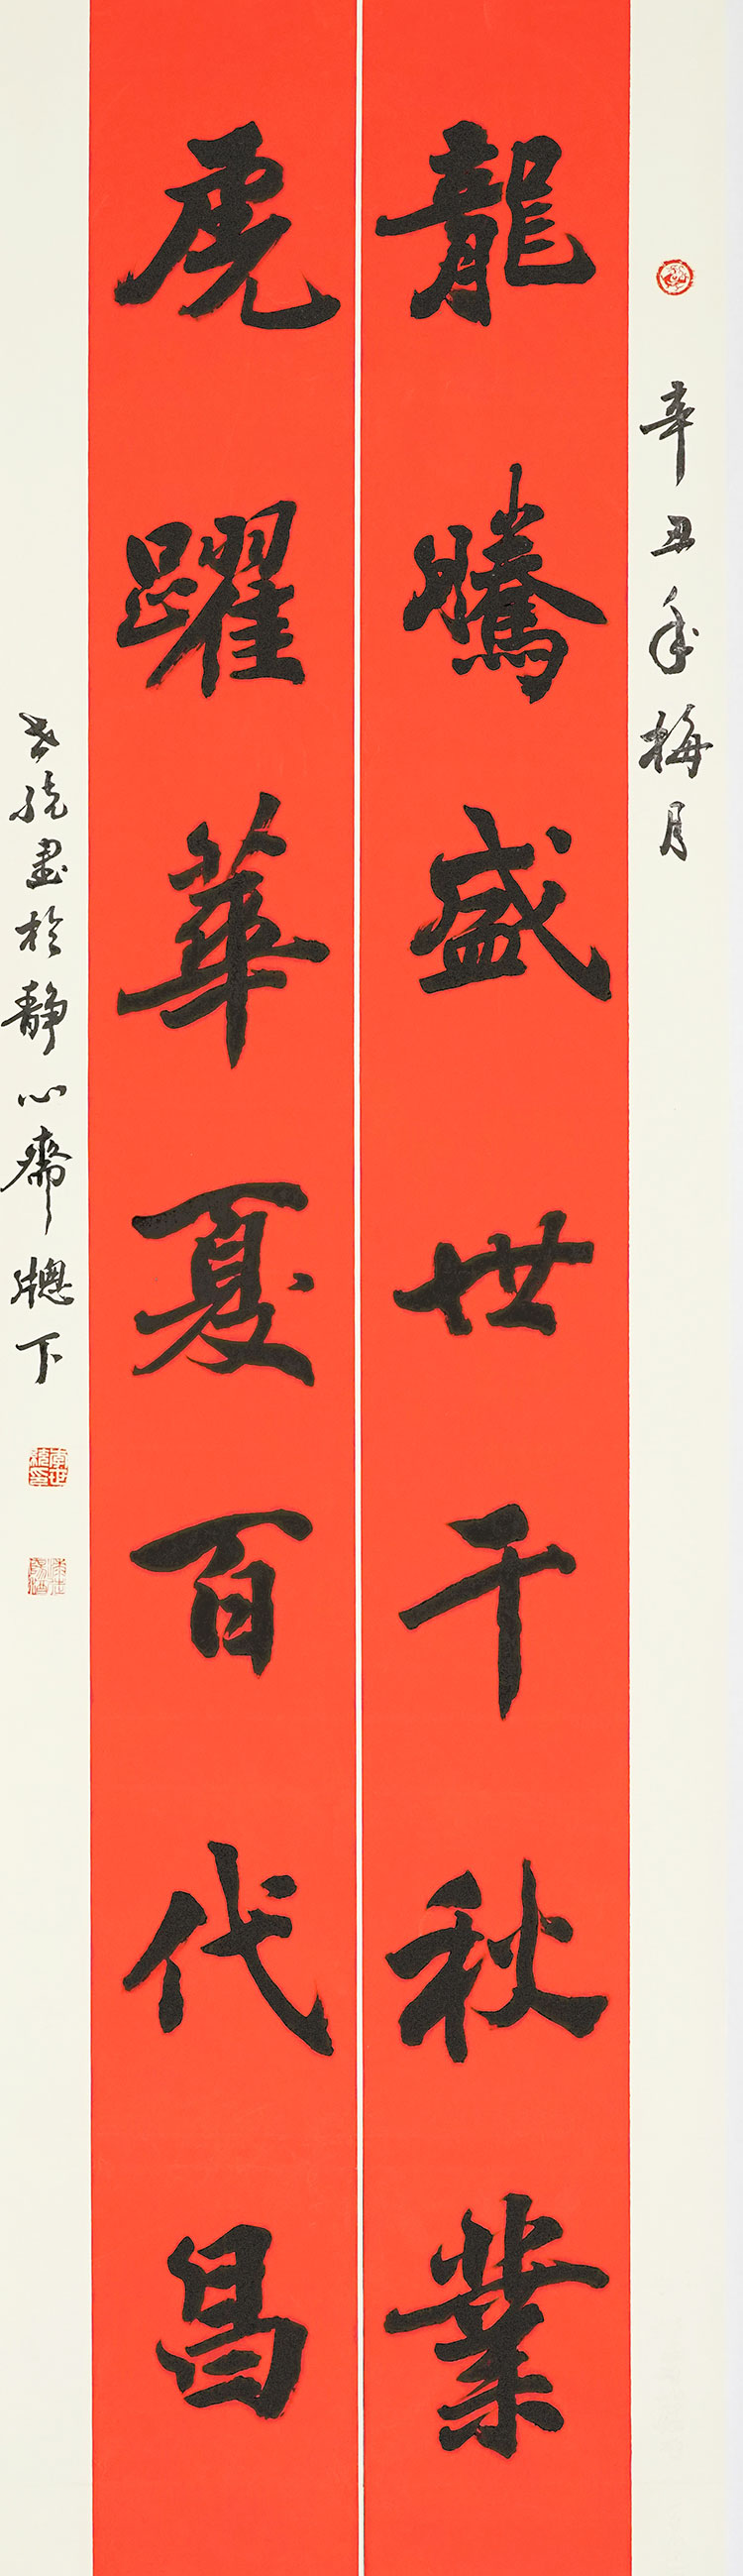 辛丑年梅月
龍騰盛世千秋業
虎躍華夏百代昌
世統書於靜心齋牕下